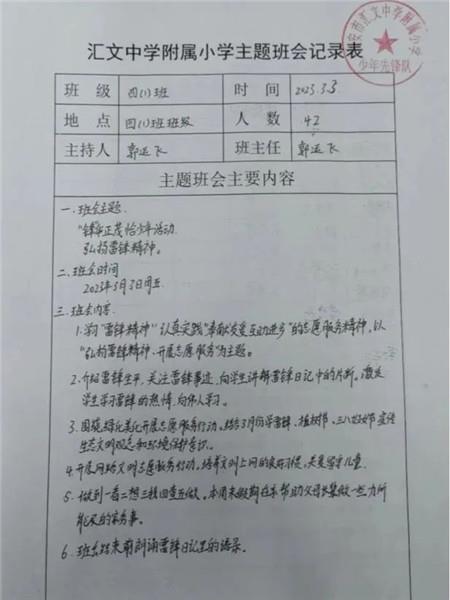 汇文中学附属小学主题班会记录表
安市汇文中学附属小学
少年先锋队
班 级 四(1)班 时 间 2023.3.3
地 点 四(1)班班级 人 数 42
主持人 郭运飞 班主任 郭运飞
主题班会主要内容
一、班会主题
"锋华正茂恰少年"活动
弘扬雷锋精神。
二、班会时间
2023年3月3日周五
三、班会内容
1.学习"雷锋精神"认真实践"奉献友爱互助进步"的志愿服务精神,以
"弘扬雷锋精神、开展志愿服务"为主题。
2.介绍雷锋生平,关注雷锋事迹,向学生讲解雷锋日记中的片断。激发
学生学习雷锋的热情,向伟人学习。
3.围绕绿化美化开展志愿服务行动。结合3月份学雷锋、植树节、三八妇女节宣传
生态文明观念和环境保护意识。
4.开展网络文明志愿服务行动,培养文明上网的良好习惯,关爱留守儿童.
5.做到一看二想三找四查五做。本周末假期在家帮助父母长辈做一些力所
能及的家务事。
6.班会结束前朗诵雷锋日记里的语录。